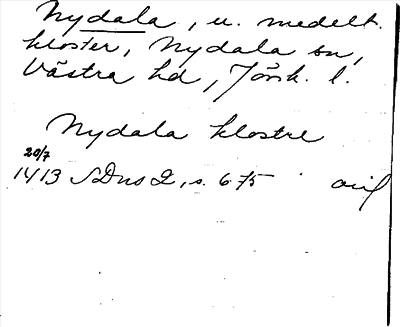 Nydala, u. medelt.
kloster, Nydala sn,
Västra hd, Jönk. l.
Nydala klostre
20/7
1413 SDns 2, s. 675 orig